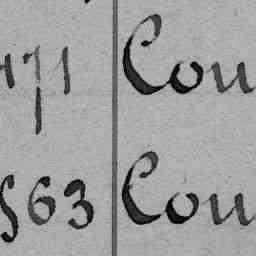 471 Cou
563 Cou